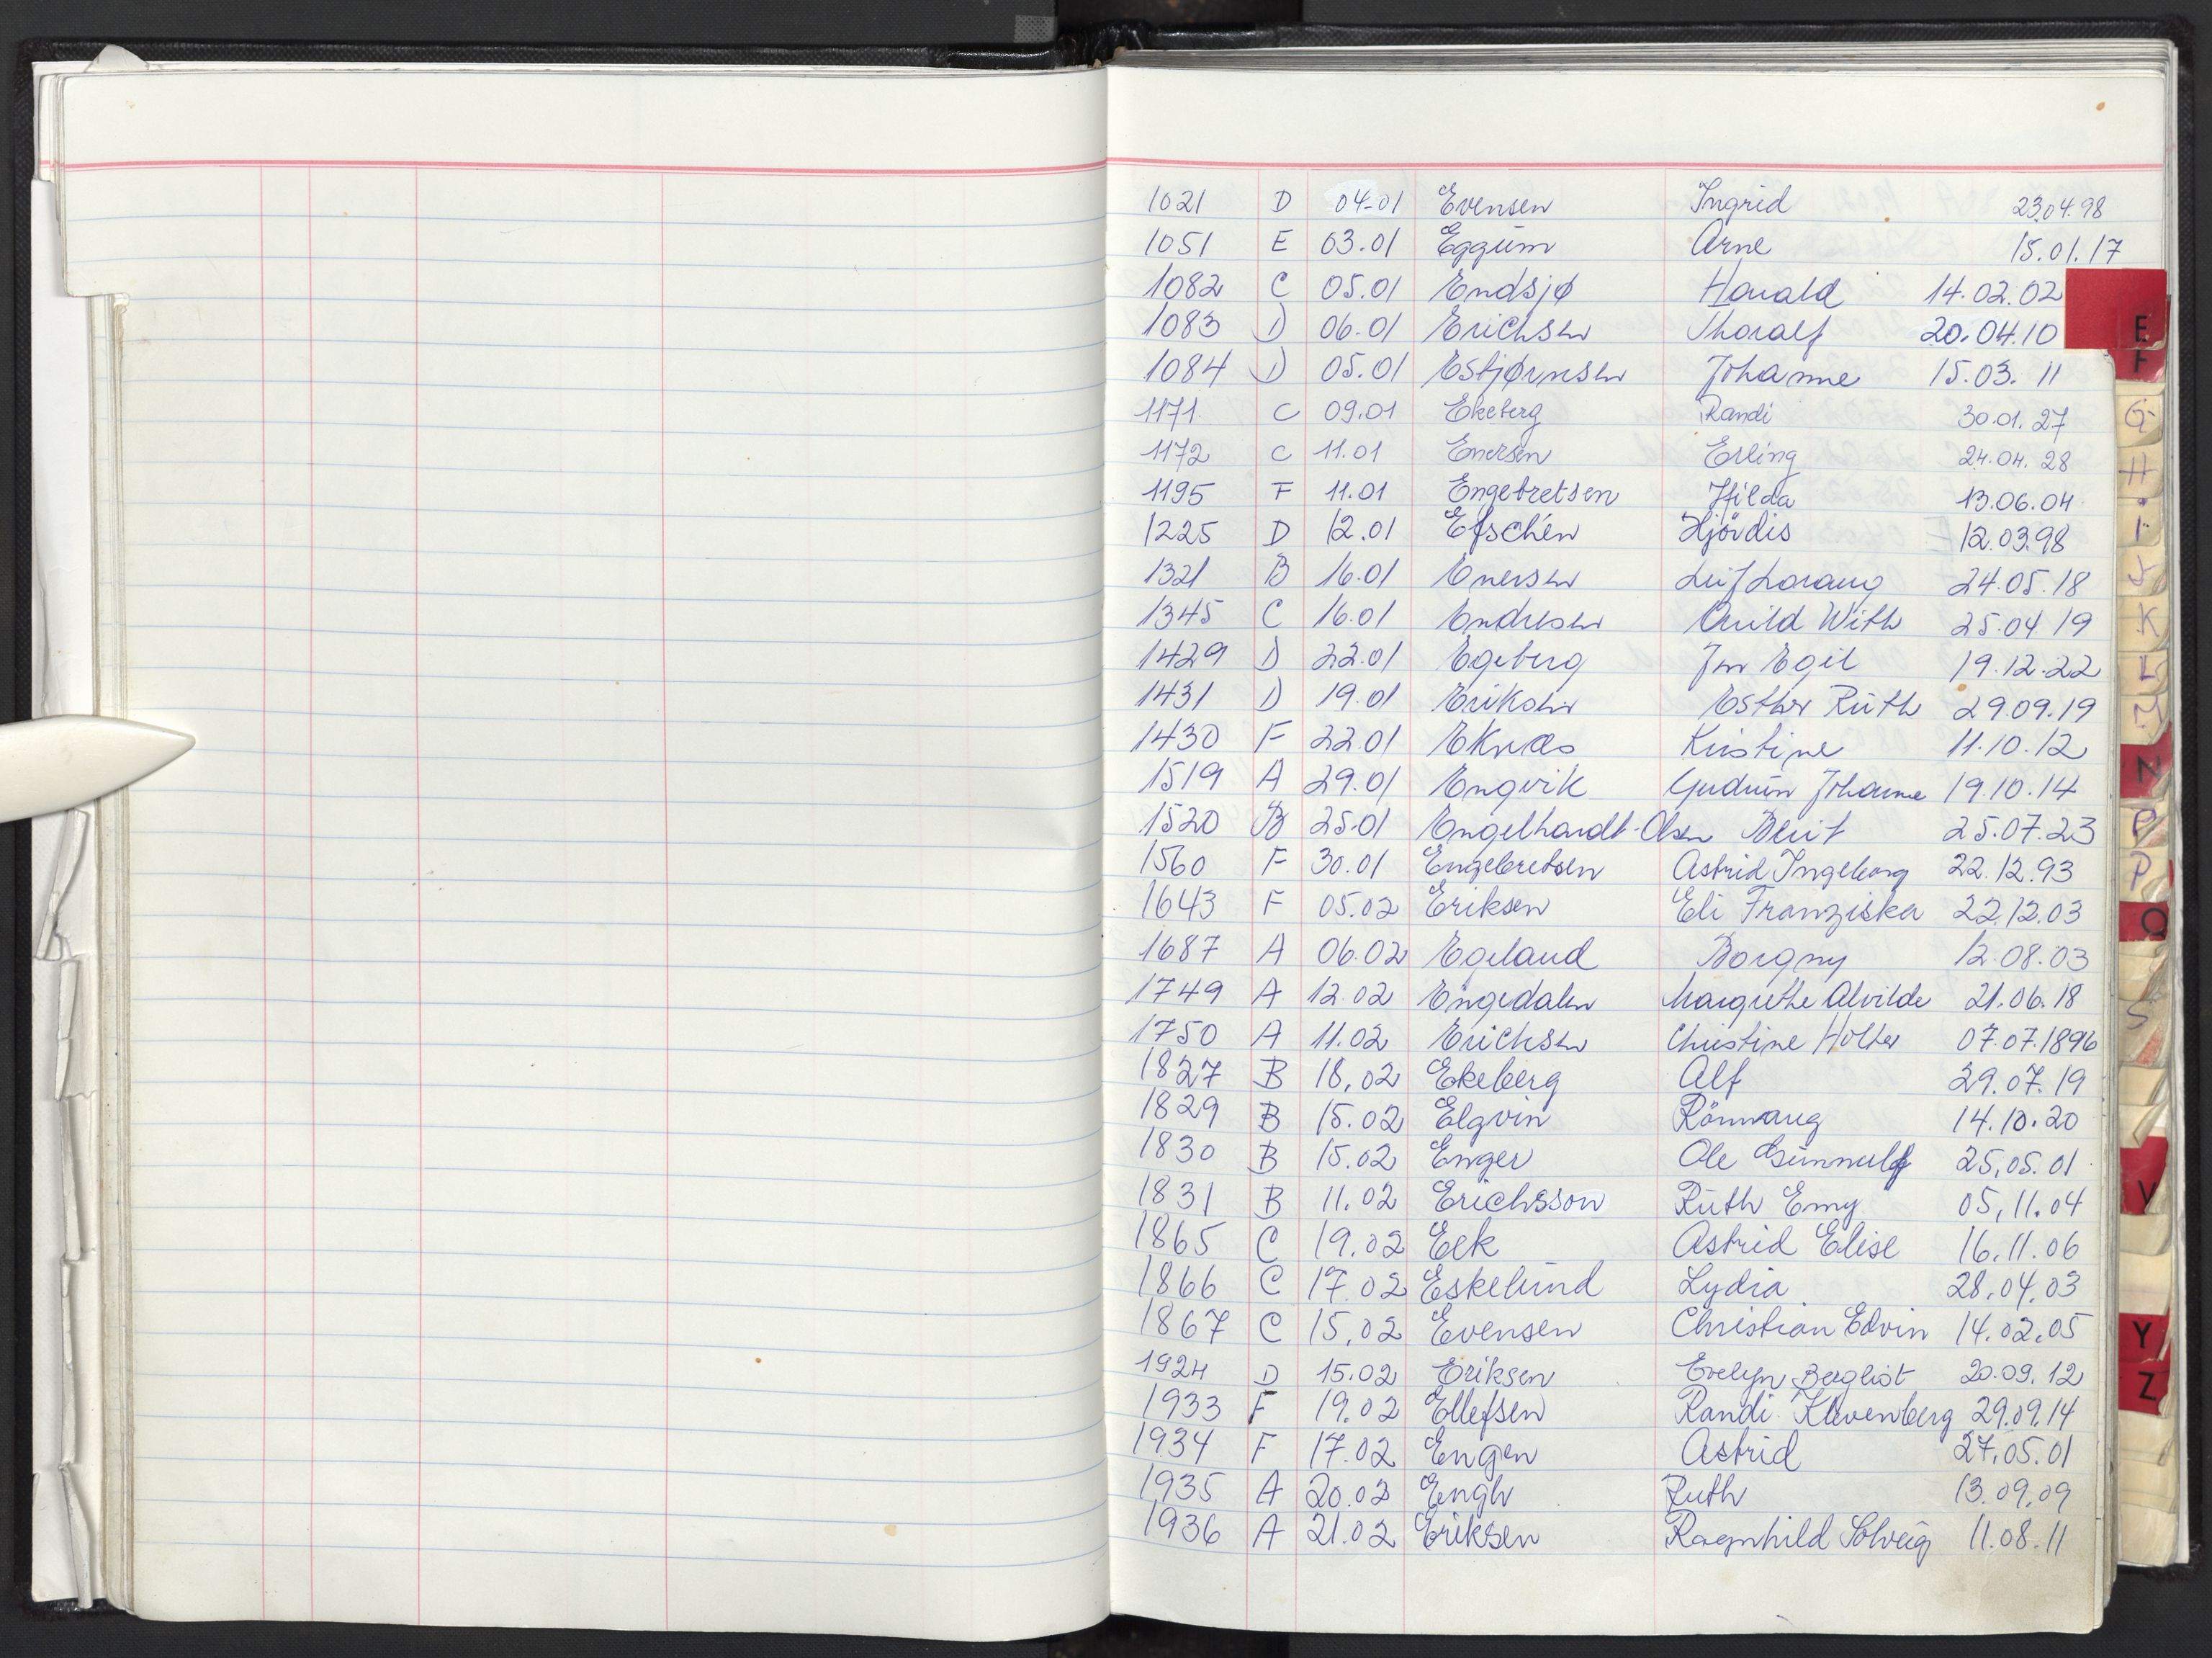 1021 D 04-01 Evensen Ingrid 23.04.98
1051 E 03.01 Eggum Arne 15.01.17
1082 C 05.01 Endsjø Harald 14.02.02
1083 D 06.01 Erichsen Thoralf 20.04.10
1084 D 05.01 Esbjørnsen Johanne 15.03.11
1171 C 09.01 Ekeberg Randi 30.01.27
1172 C 11.01 Enersen Erling 24.04.28
1195 F 11.01 Engebretsen Hilda 13.06.04
1225 D 12.01 Efschén Hjördis 12.03.98
1321 B 16.01 Enersen Leif Lorang 24.05.18
1345 C 16.01 Endresen Arild With 25.04.19
1429 D 22.01 Egeberg Jon Egil 19.12.22
1431 D 19.01 Eriksen Esther Ruth 29.09.19
1430 F 22.01 Eknæs Kristine 11.10.12
1519 A 29.01 Engvik Gudrun Johanne 19.10.14
1520 B 25.01 Engelhardt-Olsen Berit 25.07.23
1560 F 30.01 Engebretsen Astrid Ingeborg 22.12.93
1643 F 05.02 Eriksen Eli Franziska 22.12.03
1687 A 06.02 Egeland Borgny 12.08.03
1749 A 12.02 Engedalen Margrethe Alvilde 21.06.18
1750 A 11.02 Erichsen Christine Holter 07.07.1896
1827 B 18.02 Ekeberg Alf 29.07.19
1829 B 15.02 Elgvin Rönnaug 14.10.20
1830 B 15.02 Enger Ole Gunnulf 25.05.01
1831 B 11.02 Erichsson Ruth Emy 05.11.04
1865 C 19.02 Eek Astrid Elise 16.11.06
1866 C 17.02 Eskelund Lydia 28.04.03
1867 C 15.02 Evensen Christian Edvin 14.02.05
1924 D 15.02 Eriksen Evelyn Bergliot 20.09.12
1933 F 19.02 Ellefsen Randi Klevenberg 29.09.14
1934 F 17.02 Engen Astrid 27.05.01
1935 A 20.02 Engh Ruth 13.09.09
1936 A 21.02 Eriksen Ragnhild Solveig 11.08.11
E
F
G
H
I
J
K
L
M
N
O
P
Q
S
V
Y
Z